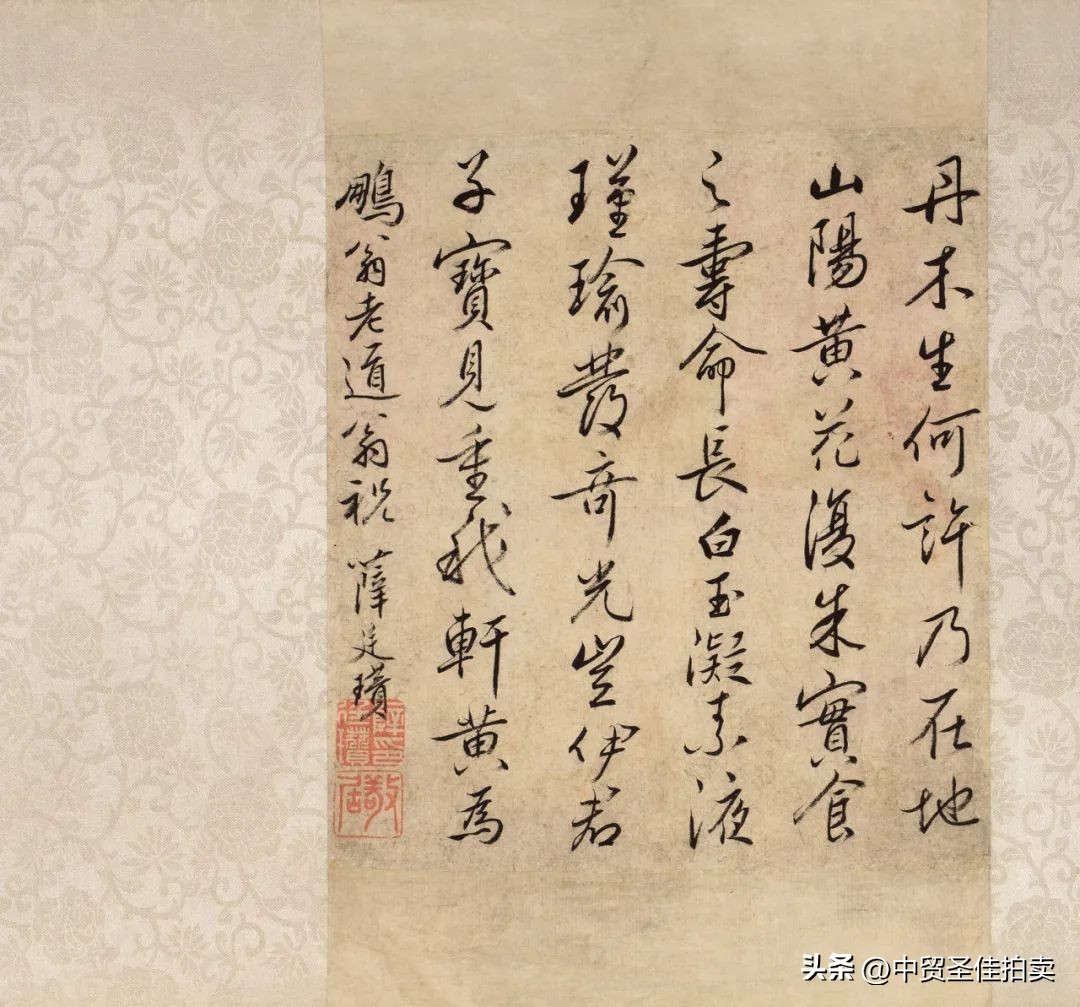 丹木生何許乃在地
山陽黄花復朱實食
之壽命長白玉凝素液
瑾瑜發奇光豈伊君
子寶見重我軒黄為
鵬翁老道翁祝 薛廷
头条 @中贸圣佳拍卖